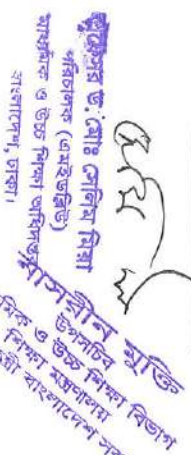 প্রফেসর ড. মোঃ সেলিম মিয়া
পরিচালক (এমইউইউ)
মাধ্যমিক ও উচ্চ শিক্ষা অধিদপ্তর
বাংলাদেশ, ঢাকা।
নাসরীন মুক্তি
উপসচিব
মিক ও উচ্চ শিক্ষা বিভাগ
শিক্ষা মন্ত্রণালয়
বাংলাদেশ